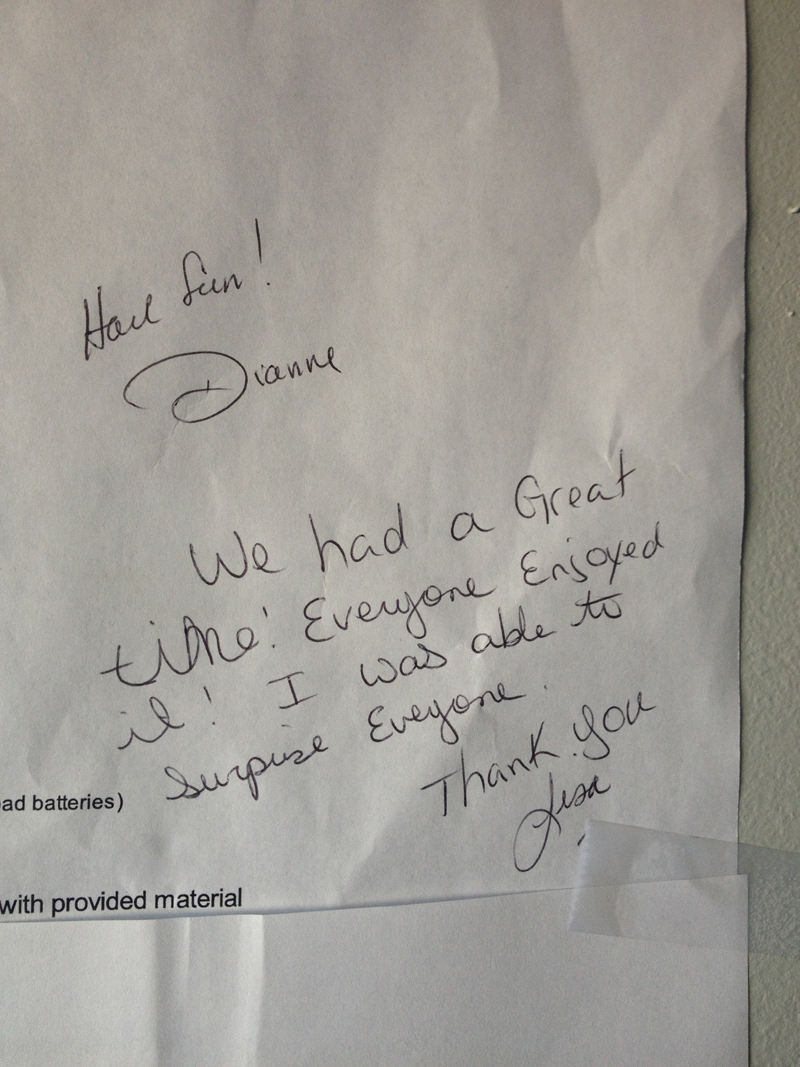 Have fun!
Dianne
We had a Great
time! Everyone Enjoyed
it! I was able to
surprise Eveyone.
Thank you
Lisa
ad batteries)
with provided material